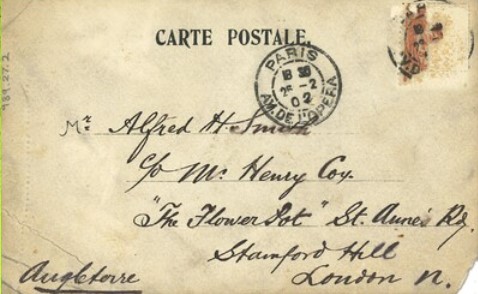 CARTE POSTALE.
PARIS
18 30
26 -2
02
AV. DE L'OPERA
989.27.2
Mr. Alfred H. Smith
c/o Mr. Henry Cox.
"The Flower Pot" St. Anne's Rd.
Stamford Hill
London N.
Angleterre